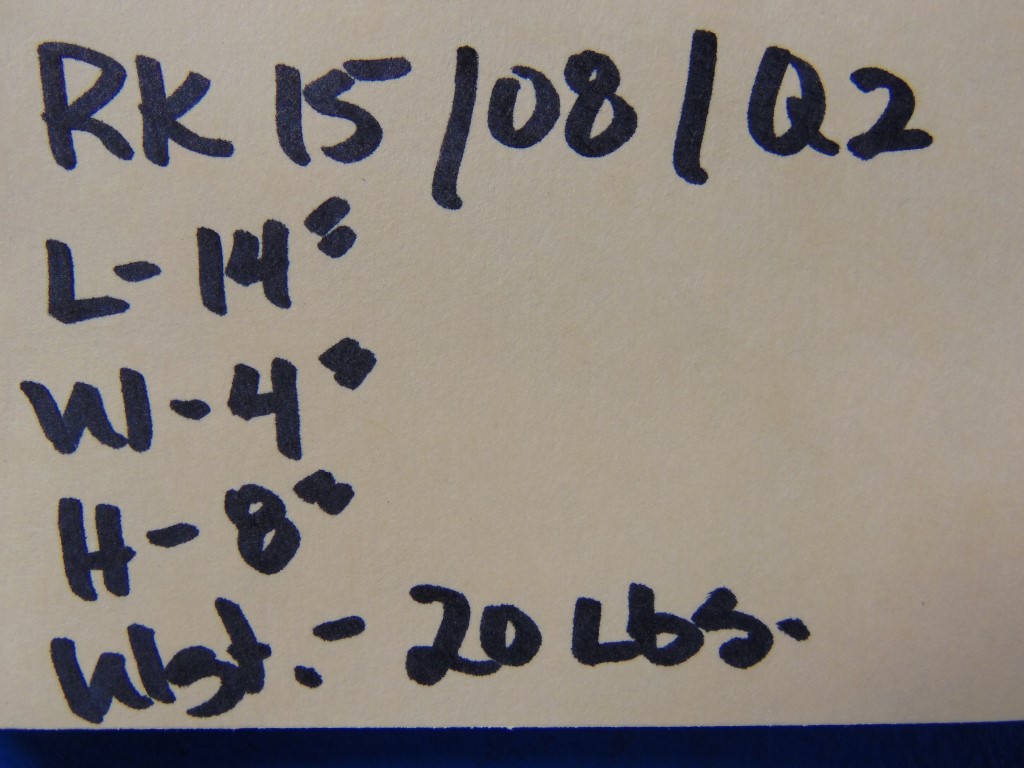 RK 15/08/Q2
L-14"
W-4"
H-8"
Wgt.-20 Lbs.